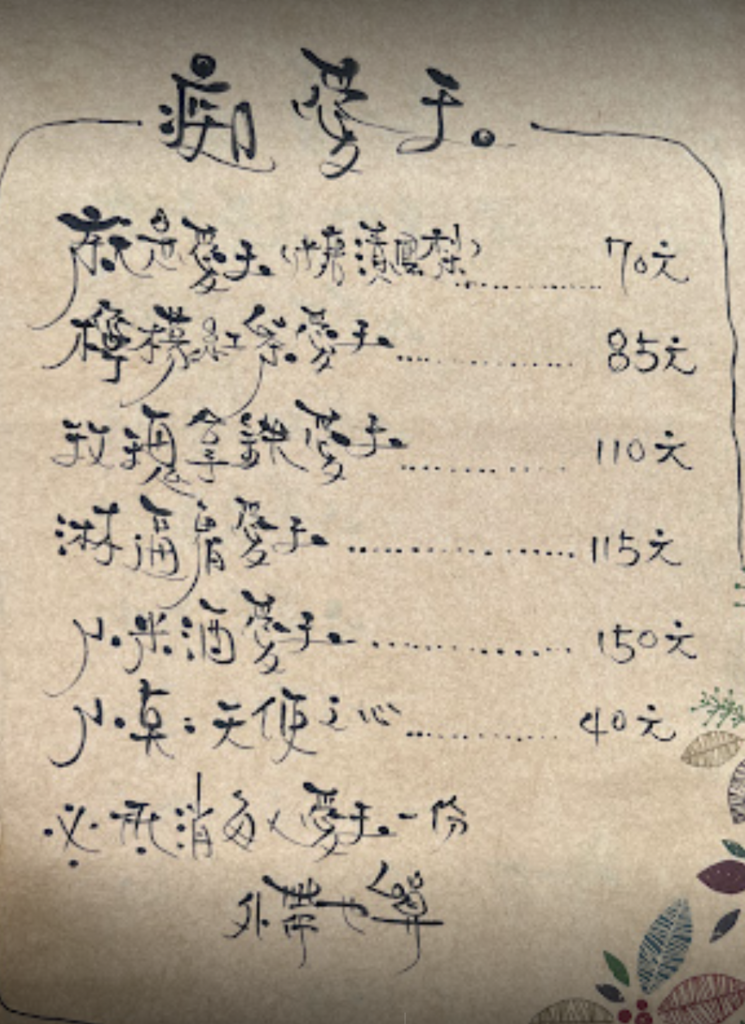 痴愛玉。
就是愛玉(糖漬鳳梨)..........70元
檸檬紅愛玉..........85元
玫瑰拿鐵愛玉..........110元
淋逼背愛玉..........115元
小米酒愛玉..........150元
小:天使之心..........40元
※低消每人愛玉一份
外帶也算